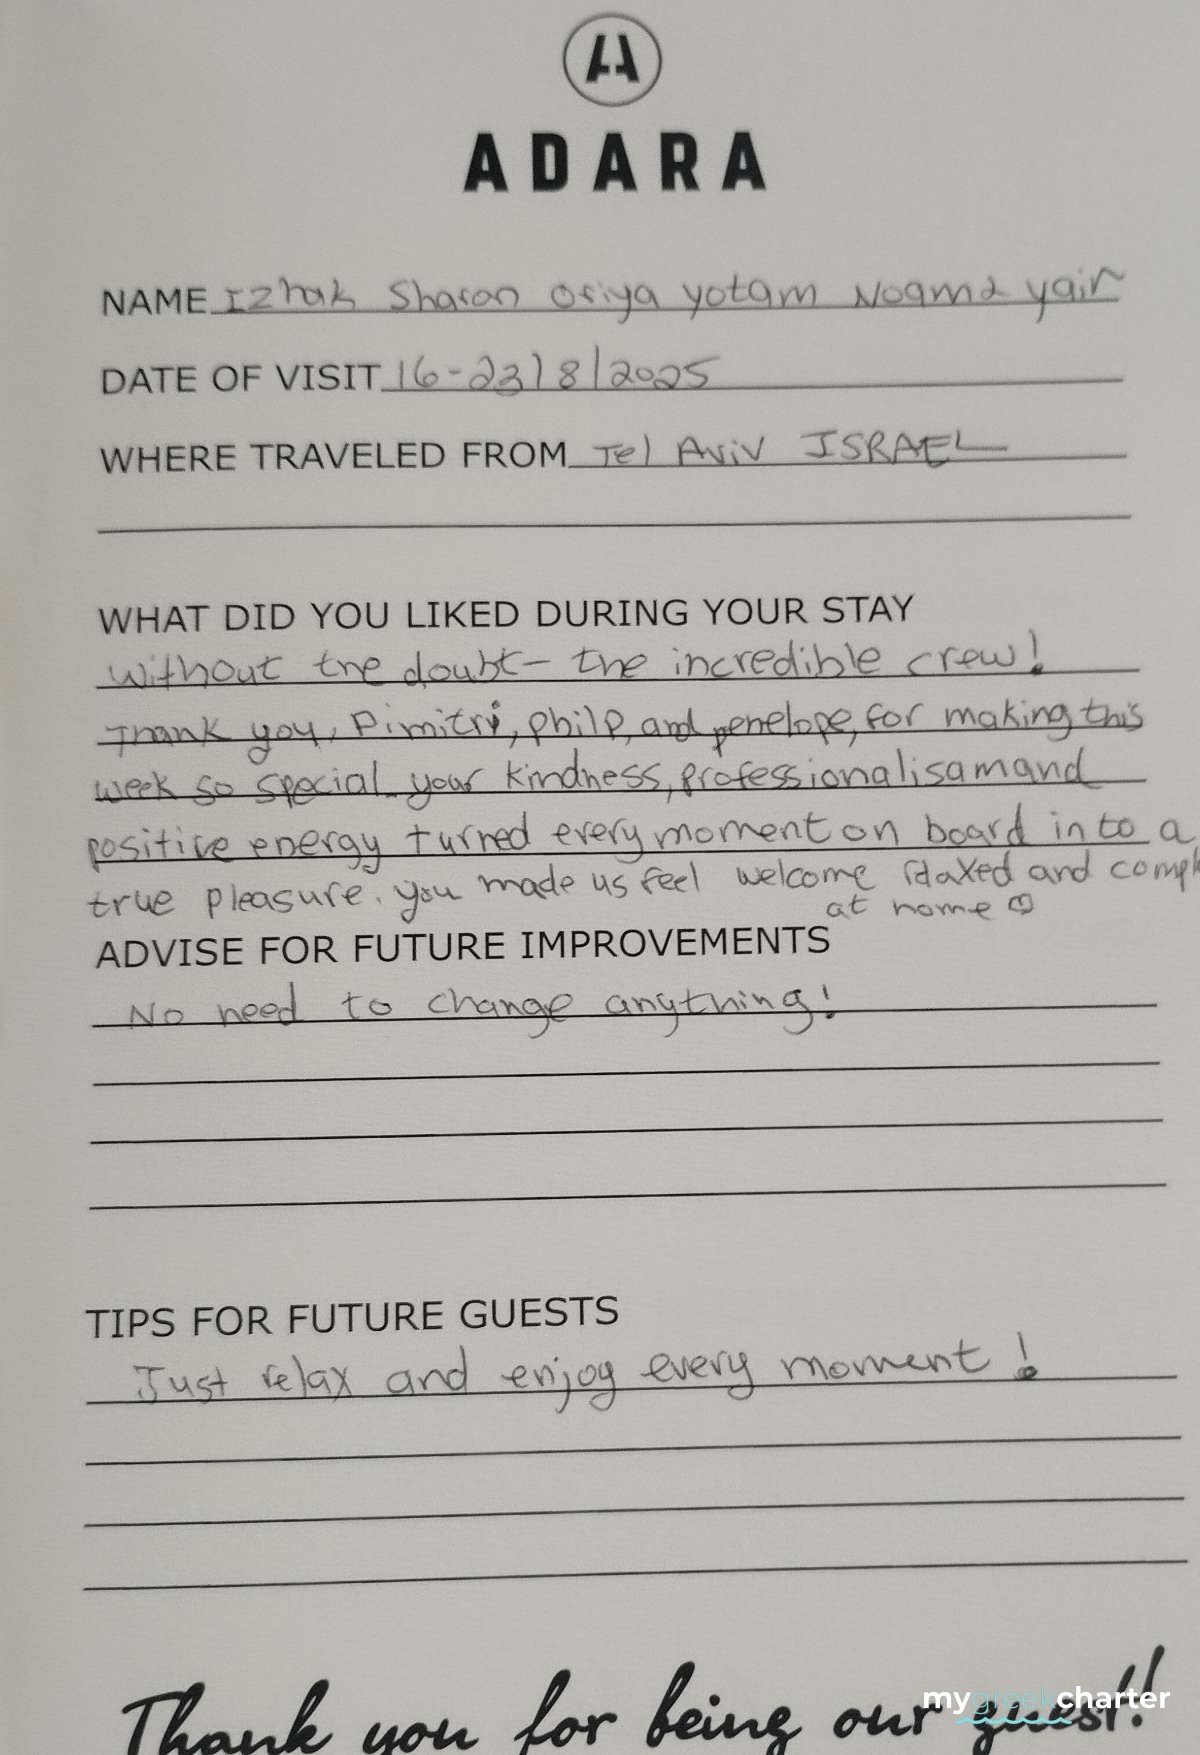 ADARA
NAME Izhak Sharon Oriya yotam Noama yair
DATE OF VISIT 16-23/8/2025
WHERE TRAVELED FROM Tel Aviv ISRAEL
WHAT DID YOU LIKED DURING YOUR STAY
without the doubt- the incredible crew!
Thank you, Dimitri, philp, and penelope, for making this
week so special. your kindness, professionalisam and
positive energy turned every moment on board in to a
true pleasure. you made us feel welcome relaxed and compl
at home
ADVISE FOR FUTURE IMPROVEMENTS
No need to change anything!
TIPS FOR FUTURE GUESTS
Just relax and enjoy every moment!
Thank you for being our guest!!
mygreekcharter